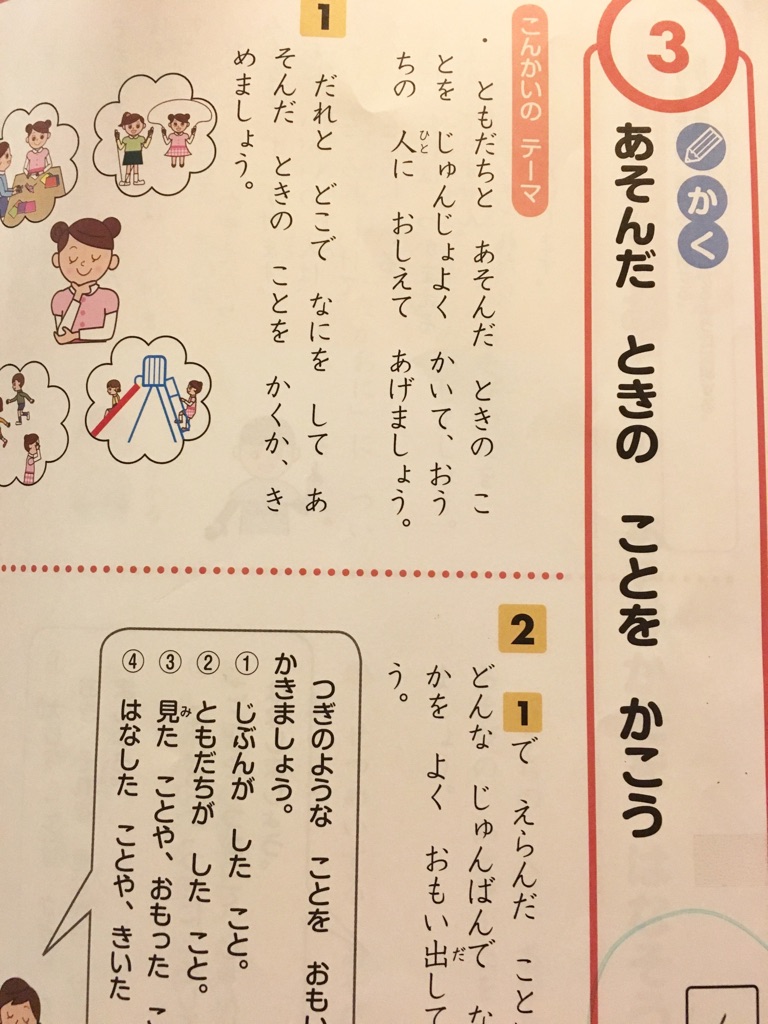 3
かく
あそんだ ときの ことを かこう
こんかいの テーマ
・ ともだちと あそんだ ときの こ
とを じゅんじょよく かいて、おう
ちの 人に おしえて あげましょう。
ひと
1
だれと どこで なにを して あ
そんだ ときの ことを かくか、き
めましょう。
2
1で えらんだ こと
どんな じゅんばんで な
かを よく おもい出して
だ
う。
つぎのような ことを おもい
かきましょう。
① じぶんが した こと。
② ともだちが した こと。
③ 見た ことや、おもった こ
み
④ はなした ことや、きいた